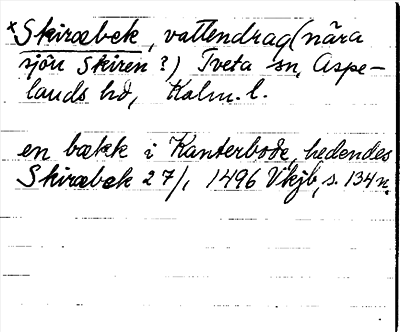 *Skiræbek, vattendrag (nära
sjön Skiren?) Tveta sn, Aspe-
lands hd, Kalm. l.
en bækk i Kanterbode, hedendes
Skiræbek 27/1 1496 Vkjb, s. 134 n.